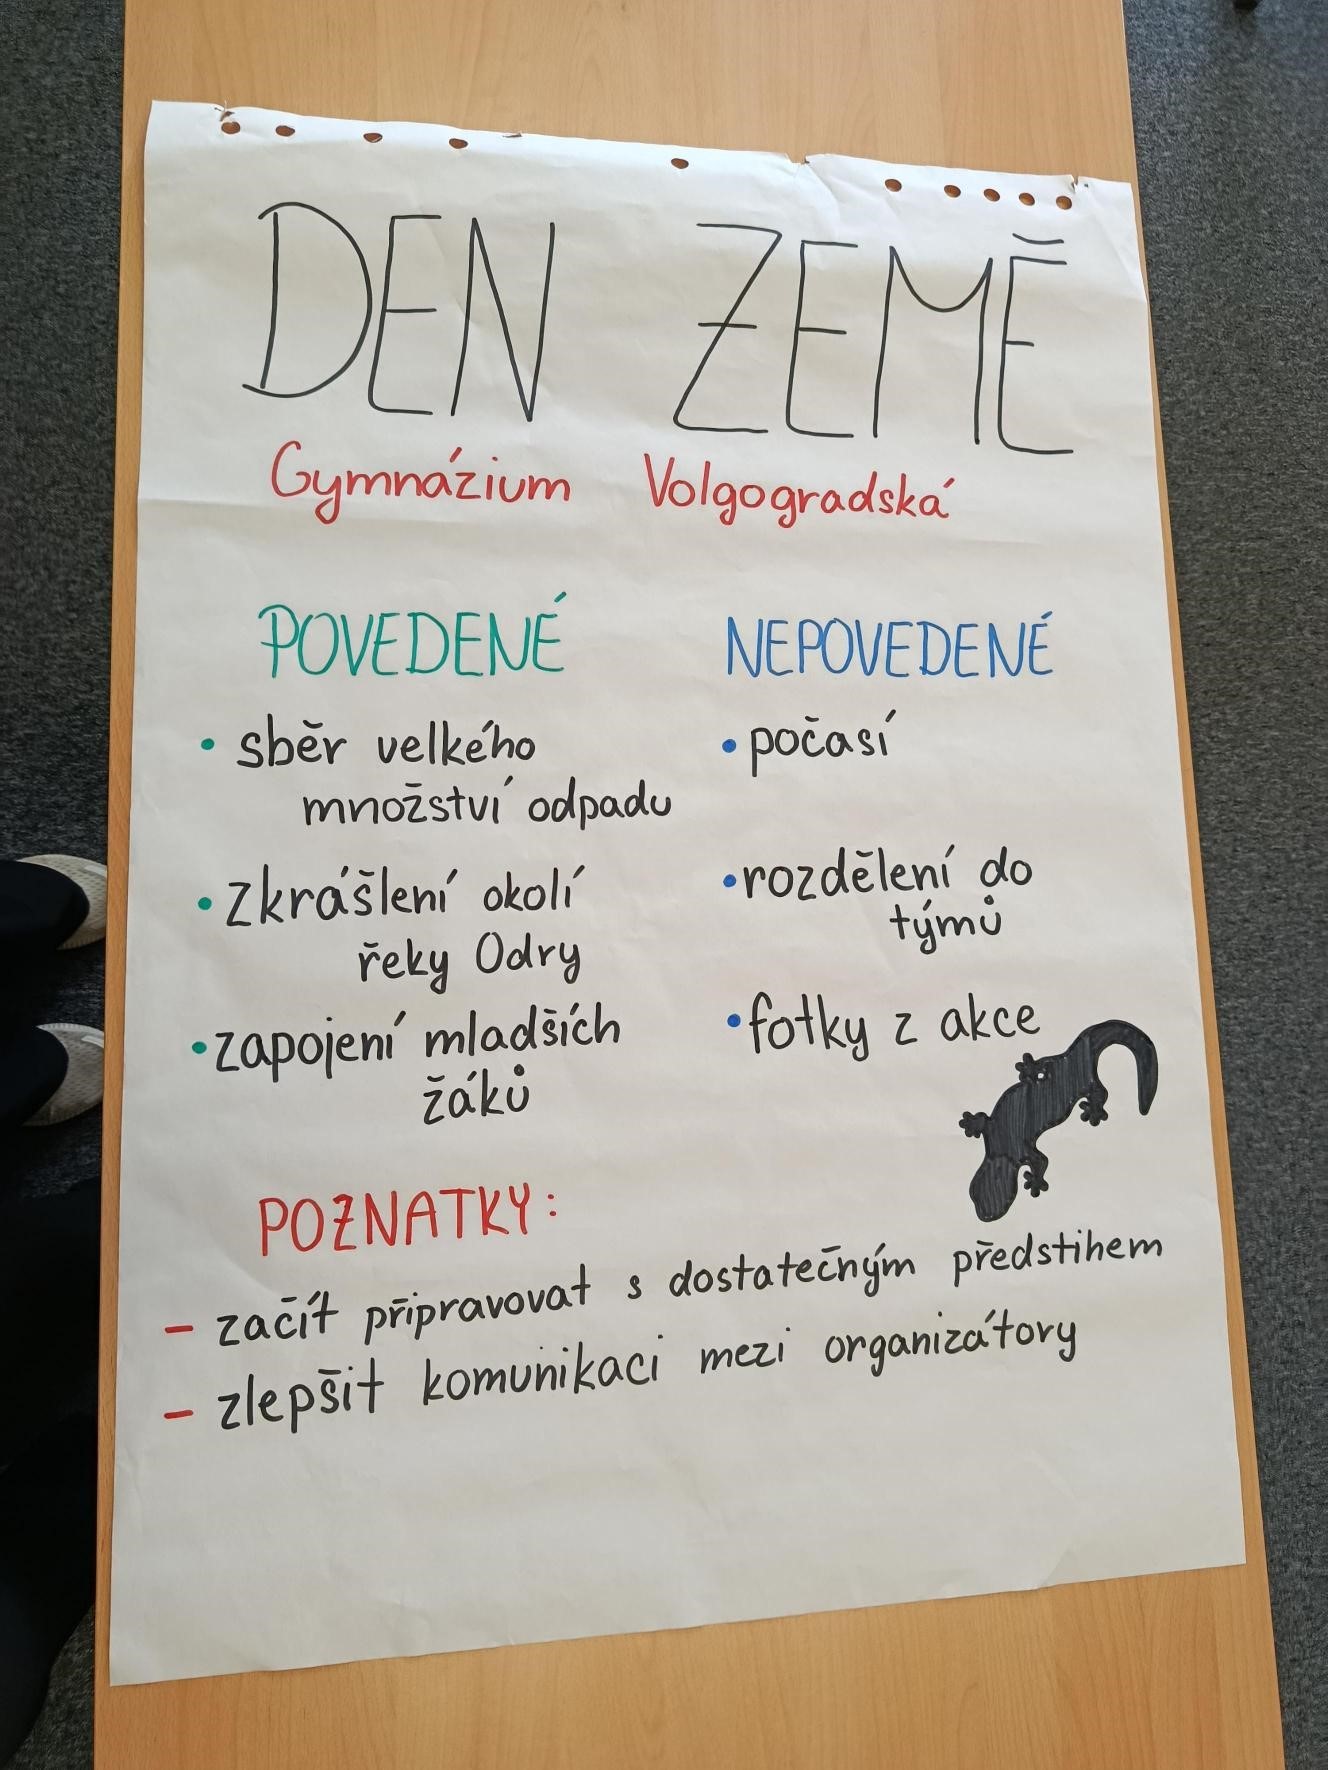 DEN ZEMĚ
Gymnázium Volgogradská
POVEDENÉ
• sběr velkého
množství odpadu
• zkrášlení okolí
řeky Odry
• zapojení mladších
žáků
NEPOVEDENÉ
• počasí
• rozdělení do
týmů
• fotky z akce
POZNATKY:
– začít připravovat s dostatečným předstihem
– zlepšit komunikaci mezi organizátory